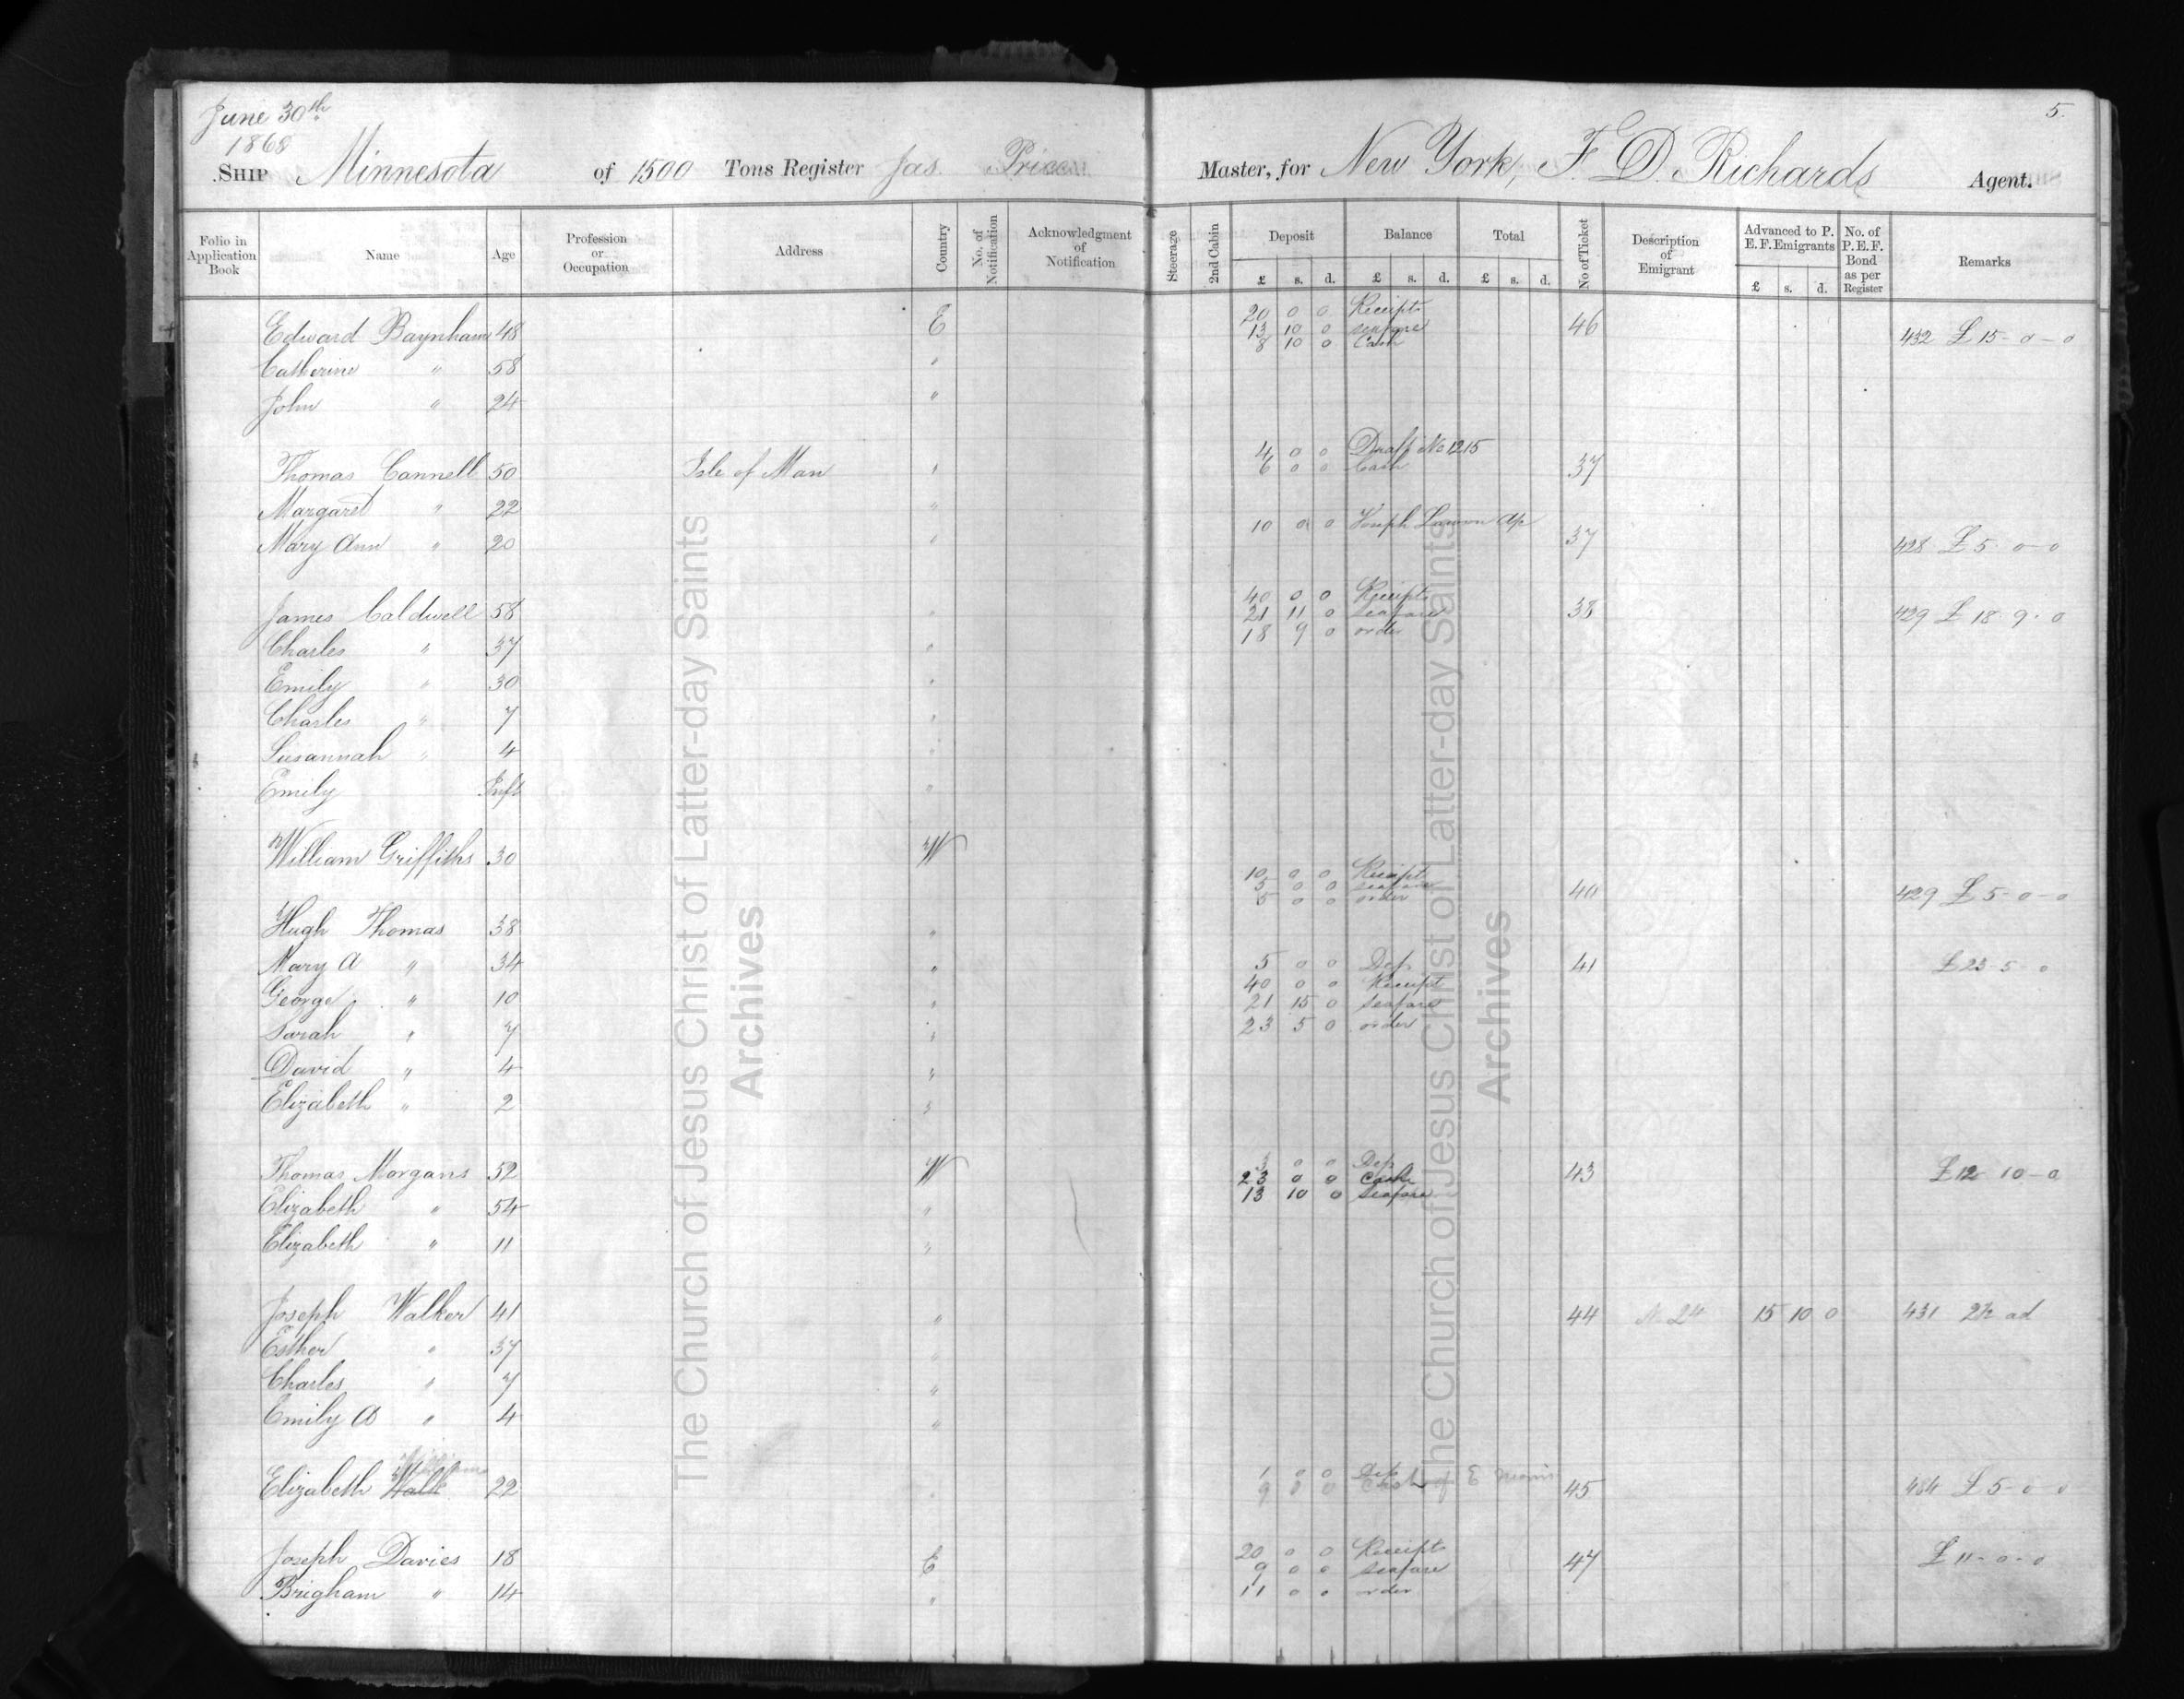 June 30th
1868
5.
SHIP Minnesota of 1500 Tons Register Jas. Price Master, for New York, F. D. Richards Agent.
Folio in Application Book Name Age Profession or Occupation Address Country No. of Notification Acknowledgment of Notification Steerage 2nd Cabin Deposit Balance Total No of Ticket Description of Emigrant Advanced to P. E. F. Emigrants No. of P.E.F. Bond as per Register Remarks
£ s. d. £ s. d. £ s. d. £ s. d.
20 0 0 Receipts
Edward Baynham 48 E 13 10 0 seafare 46 432 £15-0-0
8 10 0 Cash
Catherine " 58 "
John " 24 "
4 0 0 Draft No 1215
Thomas Cannell 50 Isle of Man " 6 0 0 Cash 37
Margaret " 22 "
10 0 0 Joseph
Mary Ann " 20 " 37 428 £5-0-0
40 0 0 Receipts
James Caldwell 58 " 21 11 0 seafare 38 429 £18-9-0
18 9 0 order
Charles " 37 "
Emily " 30 "
Charles " 7 "
Susannah " 4 "
Emily Inft "
William Griffiths 30 W
10 0 0 Receipt
5 0 0 seafare 40 429 £5-0-0
5 0 0 order
Hugh Thomas 38 "
Mary A " 34 " 5 0 0 Dep 41 £23 5 0
40 0 0 Receipt
George " 10 " 21 15 0 seafare
Sarah " 7 " 23 5 0 order
David " 4 "
Elizabeth " 2 "
3 0 0 Dep
Thomas Morgans 52 W 23 0 0 Cash 43 £12-10-0
13 10 0 seafare
Elizabeth " 54 "
Elizabeth " 11 "
Joseph Walker 41 " 44 N 24 15 10 0 431 2½ ad
Esther " 37 "
Charles " 7 "
Emily A " 4 "
1 0 0 Dep
Elizabeth Walk 22 " 9 0 0 Cash of E 45 £5-0-0
20 0 0 Receipts
Joseph Davies 18 E 9 0 0 seafare 47 £11-0-0
Brigham " 14 " 11 0 0 order
The Church of Jesus Christ of Latter-day Saints
Archives
The Church of Jesus Christ of Latter-day Saints
Archives